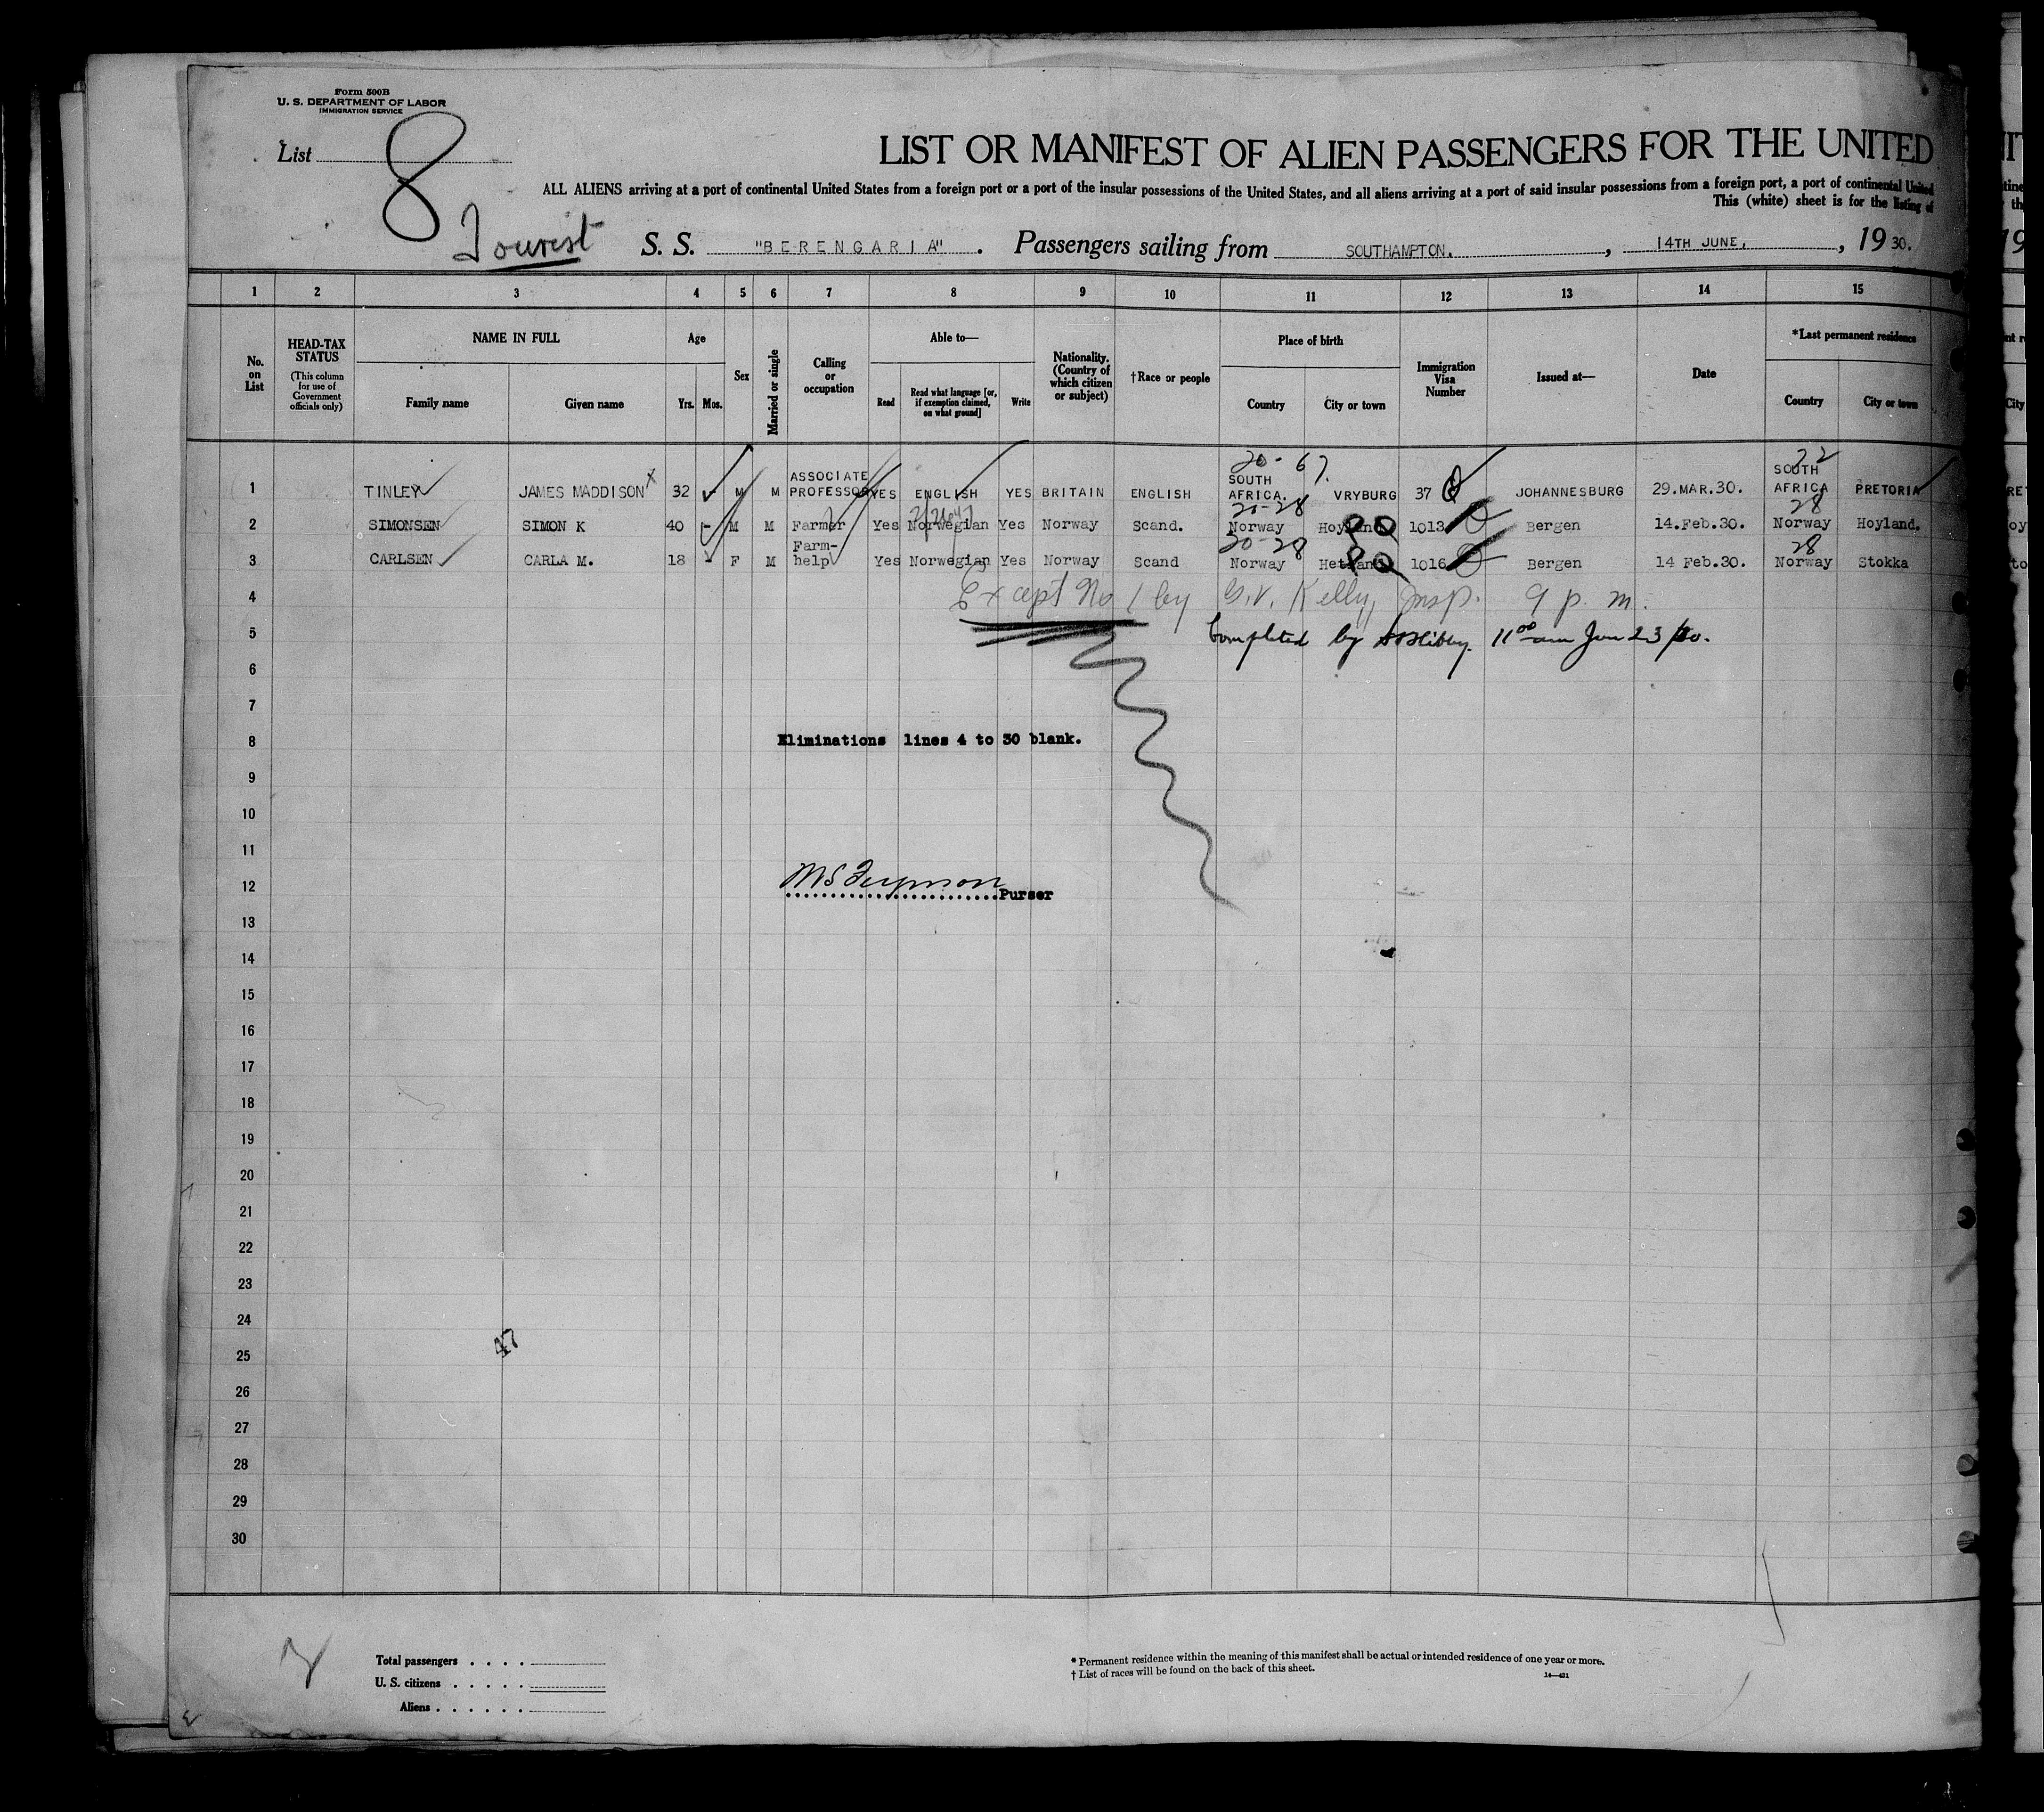 Form 500B
U. S. DEPARTMENT OF LABOR
IMMIGRATION SERVICE
List 8
LIST OR MANIFEST OF ALIEN PASSENGERS FOR THE UNITED
ALL ALIENS arriving at a port of continental United States from a foreign port or a port of the insular possessions of the United States, and all aliens arriving at a port of said insular possessions from a foreign port, a port of continental United
This (white) sheet is for the listing of
Tourist S. S. "BERENGARIA". Passengers sailing from SOUTHAMPTON., 14TH JUNE, , 19 30.
1 2 3 4 5 6 7 8 9 10 11 12 13 14 15
No. on List
HEAD-TAX STATUS
(This column for use of Government officials only)
NAME IN FULL
Family name Given name
Age
Yrs. Mos.
Sex
Married or single
Calling or occupation
Able to—
Read Read what language [or, if exemption claimed, on what ground] Write
Nationality. (Country of which citizen or subject)
†Race or people
Place of birth
Country City or town
Immigration Visa Number
Issued at—
Date
*Last permanent residence
Country City or town
20-67. 22
1 TINLEY JAMES MADDISON x 32 M M ASSOCIATE PROFESSOR YES ENGLISH YES BRITAIN ENGLISH SOUTH AFRICA. VRYBURG 37 JOHANNESBURG 29.MAR.30. SOUTH AFRICA PRETORIA
20-28 28
2 SIMONSEN SIMON K 40 - M M Farmer Yes Norwegian Yes Norway Scand. Norway Hoyland 1013 Bergen 14.Feb.30. Norway Hoyland.
20-28 28
3 CARLSEN CARLA M. 18 F M Farm-help Yes Norwegian Yes Norway Scand Norway Hetland 1016 Bergen 14 Feb.30. Norway Stokka
4 Except No 1 by G.V. Kelly, Insp. 9 p. m.
5 Completed by 11 00 am Jun 23/30.
6
7
8 Eliminations lines 4 to 30 blank.
9
10
11
12 Purser
13
14
15
16
17
18
19
20
21
22
23
24
25 47
26
27
28
29
30
Total passengers . . . .
U. S. citizens . . . . .
Aliens . . . . . .
* Permanent residence within the meaning of this manifest shall be actual or intended residence of one year or more.
† List of races will be found on the back of this sheet.
14—421